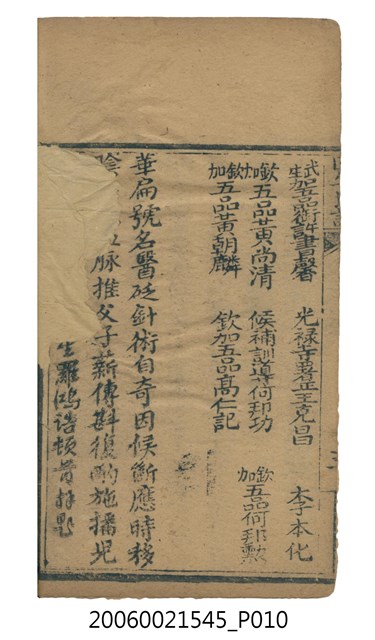 武生加五品銜許書馨 光祿寺署正王克昌 李本化
欽加五品黃尚清 候補訓導何邦功 欽加五品何邦勲
欽加五品黃朝麟 欽加五品高仁記
華扁號名醫砭針術自奇因候斷應時移
陰 脉推父子薪傳斟復酌施播
生羅鴻誥頓首拜題
20060021545_P010